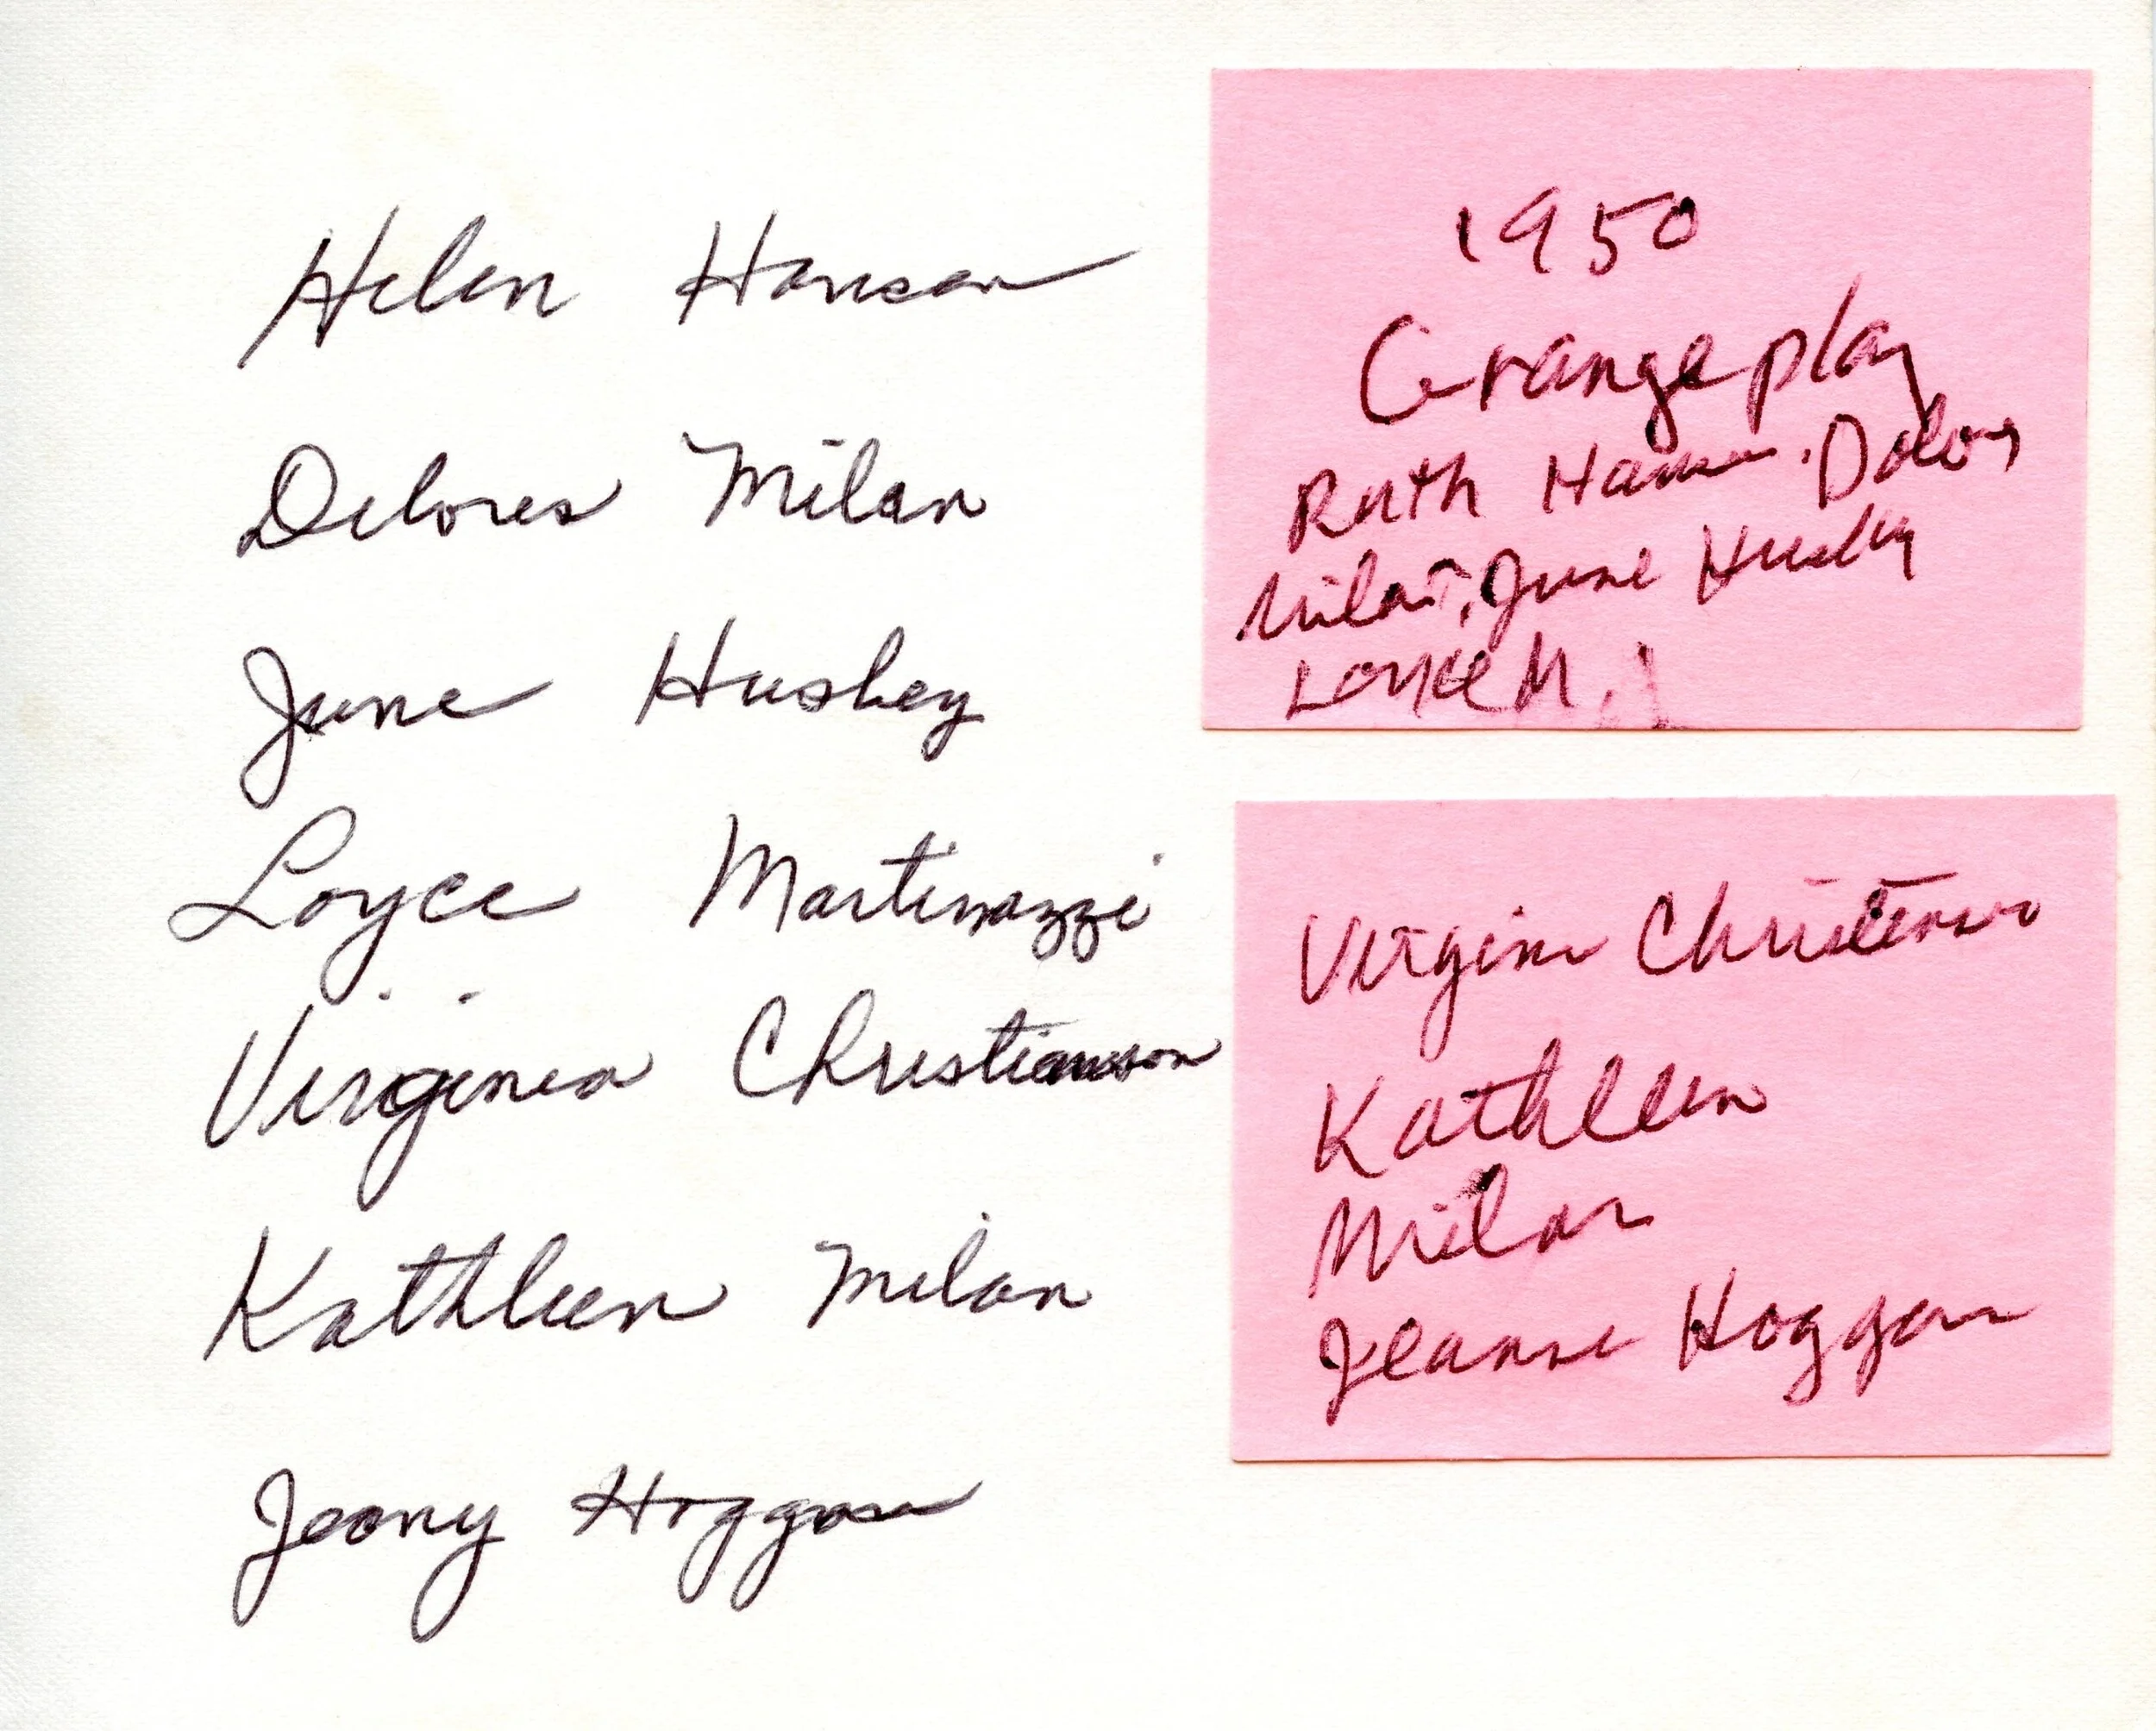 Helen Hansen
Delores Milan
June Huskey
Loyce Martinazzi
Virginia Christianson
Kathleen Milan
Jeany Hoggan
1950
Grange play
Ruth
Milan, June
Loyce M.
Virginia Christenson
Kathleen
Milan
Jeanne Hoggan